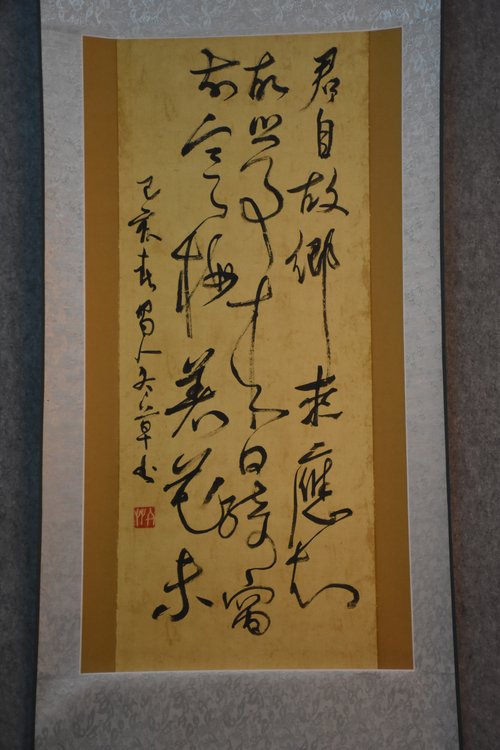 君自故鄉來應知
故鄉事来日綺窗
前寒梅著花未
己亥春蜀人草书